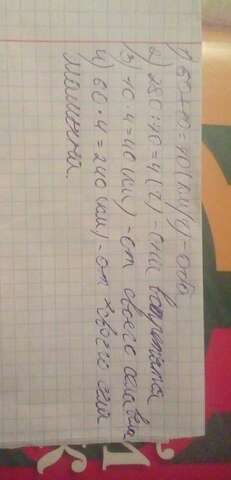 1) 60+10=70 (км/ч) -
2) 280:70=4 (ч) - они встретятся
3) 10·4=40 (км) - от своего села
4) 60·4=240 (км) - от своего села
машины.